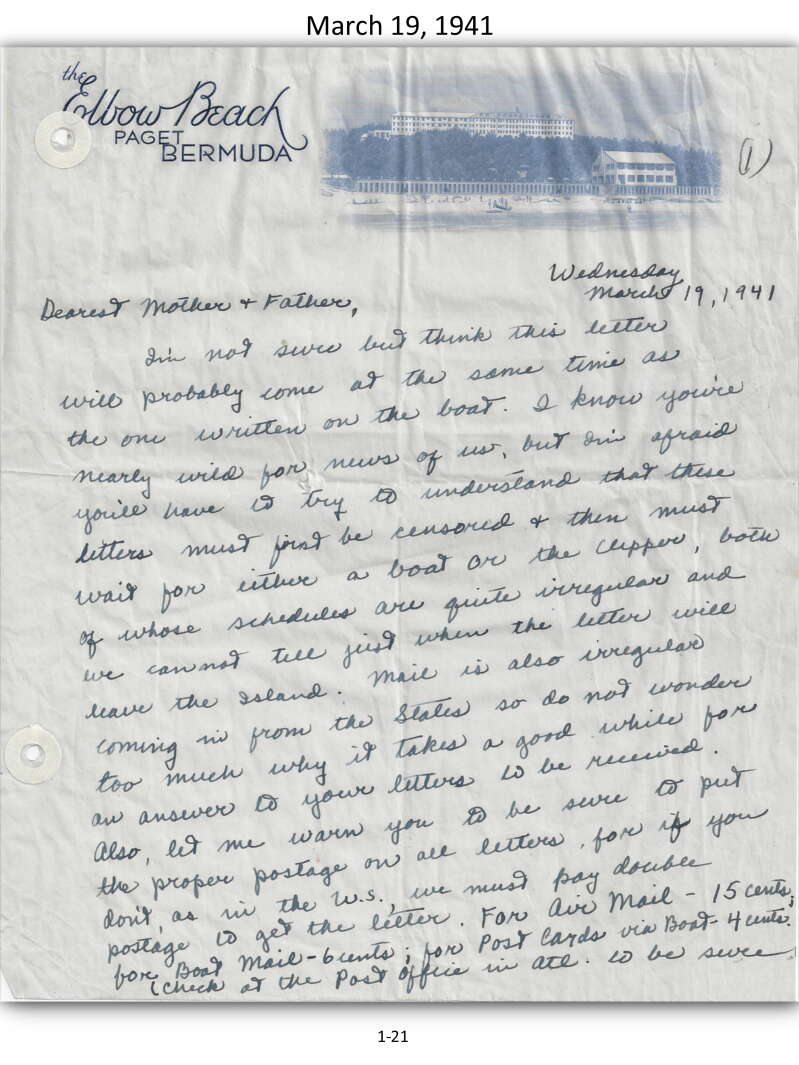 March 19, 1941
the
Elbow Beach
PAGET
BERMUDA
(1)
Wednesday
March 19, 1941
Dearest Mother + Father,
I'm not sure but think this letter
will probably come at the same time as
the one written on the boat. I know you're
nearly wild for news of us, but I'm afraid
you'll have to try to understand that these
letters must first be censored + then must
wait for either a boat or the Clipper, both
of whose schedules are quite irregular and
we cannot tell just when the letter will
leave the Island. Mail is also irregular
coming in from the States so do not wonder
too much why it takes a good while for
an answer to your letters to be received.
Also, let me warn you to be sure to put
the proper postage on all letters, for if you
don't, as in the U.S., we must pay double
postage to get the letter. For Air Mail - 15 cents;
for Boat Mail - 6 cents; for Post Cards via Boat - 4 cents.
(Check at the Post Office in Atl. to be sure
1-21